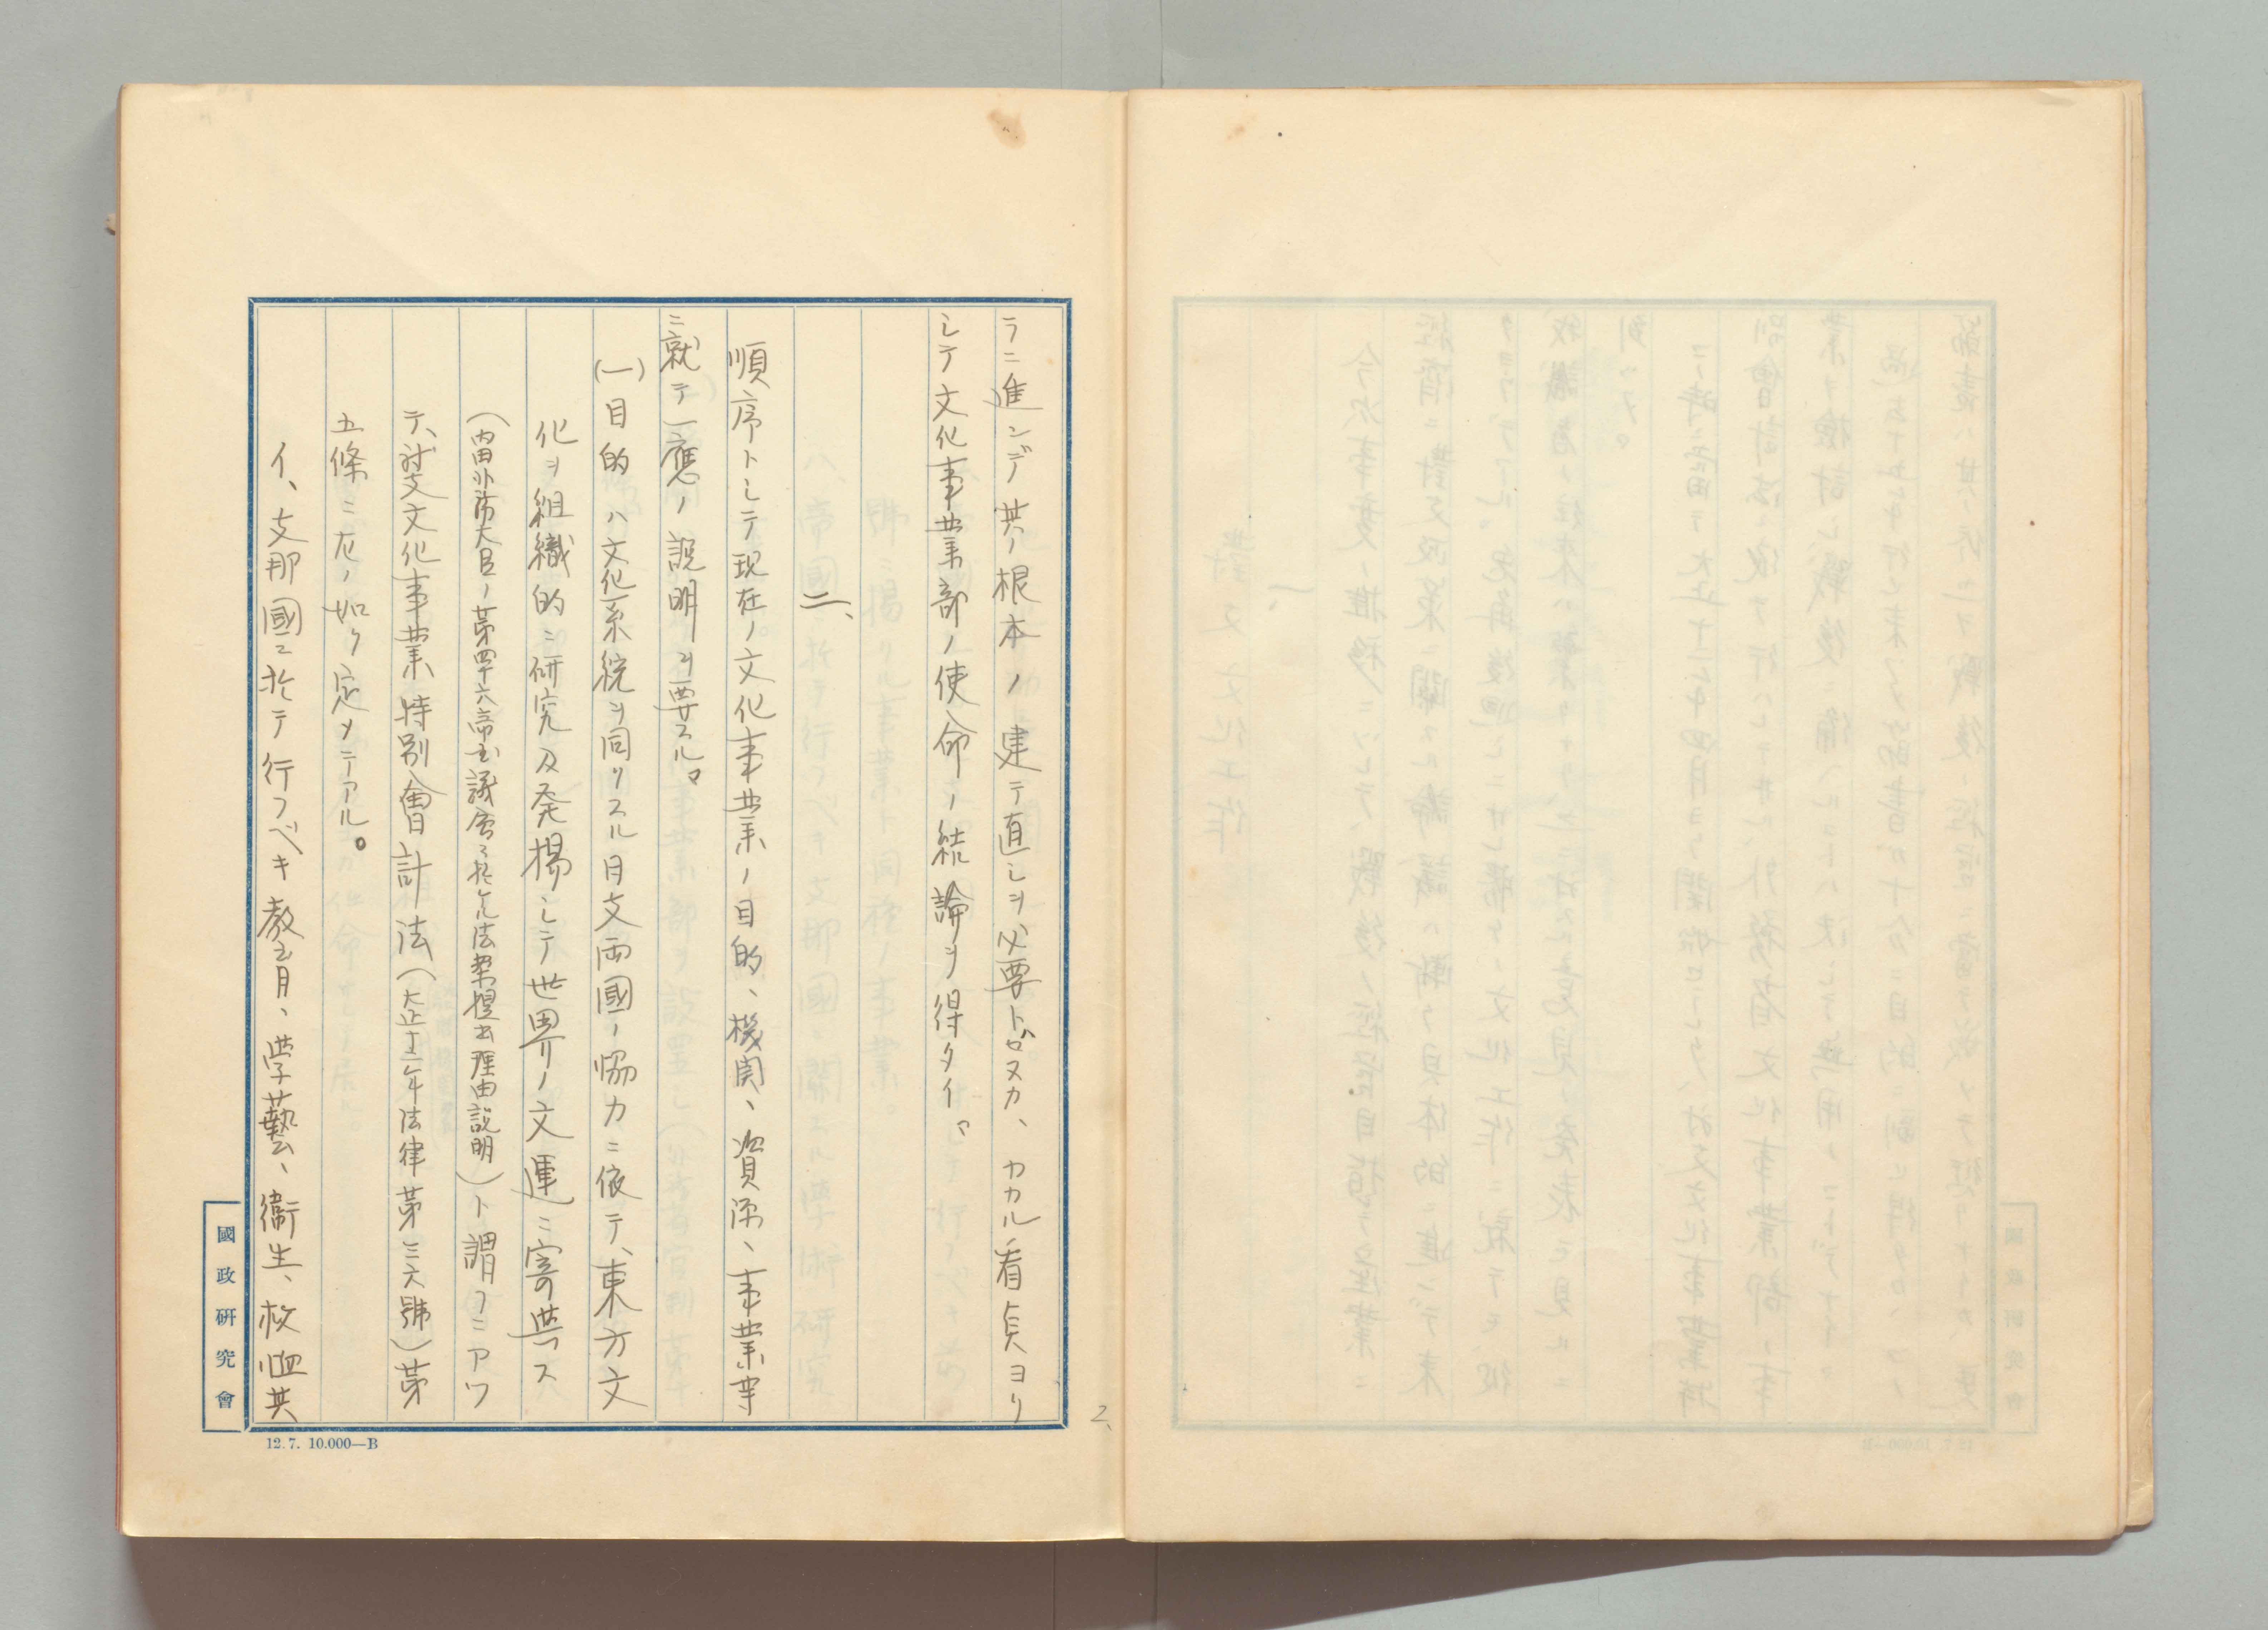 ラニ進ンデ其ノ根本ノ建テ直シヲ必要トゼヌカ、カカル看点ヨリ
シテ文化事業部ノ使命ノ結論ヲ得タイ。
二、
順序トシテ現在ノ文化事業ノ目的、機関、資源、事業等
ニ就テ一應ノ説明ヲ要スル。
(一)目的ハ文化系統ヲ同リスル日支両國ノ協力ニ依テ、東方文
化ヲ組織的ニ研究及発揚シテ世界ノ文運ニ寄與ス
(内田外務大臣ノ第四十六帝国議会ニ於ケル法案提出理由説明)ト謂フニアツ
テ、対支文化事業特別會計法(大正十二年法律第三六號)第
五條ニ左ノ如ク定メテアル。
イ、支那國ニ於テ行フベキ教育、学藝、衞生、救恤其
2、
國政研究會
12.7. 10.000—B